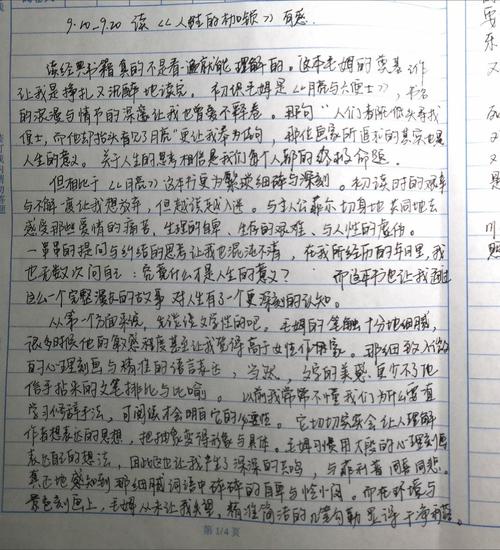 9.10-9.20 读《人性的枷锁》有感.
读经典书籍真的不是看一遍就能理解的。这本毛姆的奠基作
让我是挣扎又沉醉地读完。初识毛姆是《月亮与六便士》，书名
的浪漫与情节的深邃让我也曾爱不释卷。那句"人们都低头寻找
便士，而他却抬头看见了月亮"更让我奉为佳句，那他思客所追和的其实也是
人生的意义。关于人生的思考相信是我们每个人都的终极命题。
但相比于《月亮》这本书更为繁琐细碎与深刻。初读时的艰辛
与不解一度让我想放弃，但越读越入迷。与主人公菲尔切身地共同地去
感受那些爱情的痛苦、生理的自卑、生活的艰难、与人性的虚伪。
一串串的提问与纠结的思考让我也混沌不清，在我所经历的年月里，我
也无数次问自己：究竟什么才是人生的意义？而这本书也让我
这么一个完整漫长的故事对人生有了一个更深刻的认知。
从第一个方面来说，先谈谈文学性的吧。毛姆的笔触十分地细腻，
很多时候他的敏感程度甚至让我觉得高于女性作家。那细致入微
的心理刻画与精准的语言表达，当然，文字的美感更少不了他
信手拈来的文笔排比与比喻。以前我常常不懂我们为什么要有
学习修辞手法，可阅读才会明白它的必要性。它切切实实会让人理解
作者想表达的思想，把抽象变得形象与具体。毛姆习惯用大段的心理刻画
表达自己的想法，因此也让我产生了深深的共鸣，与菲利普同喜同悲。
真正地感知到那细腻词语中碎碎的自卑与
景色刻画上，毛姆从未让我失望，精准简洁的几笔勾勒显得干净利落。
第1/4页